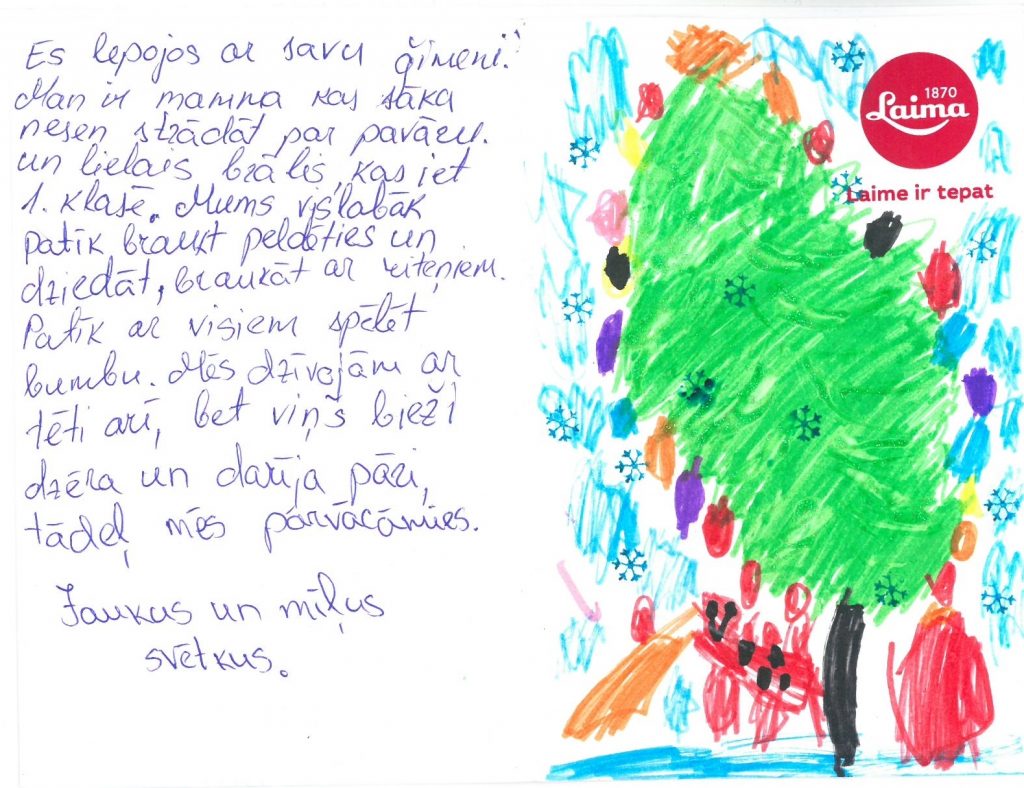 Es lepojos ar savu ģimeni.
Man ir mamma kas sāka
nesen strādāt par pavāru.
un lielais brālis, kas iet
1. klasē. Mums vislabāk
patīk braukt peldēties un
dziedāt, braukāt ar riteņiem.
Patīk ar visiem spēlēt
bumbu. Mēs dzīvojām ar
tēti arī, bet viņš bieži
dzēra un darīja pāri,
tādeļ mēs pārvācāmies.
Jaukus un mīļus
svētkus.
1870
Laima
Laime ir tepat